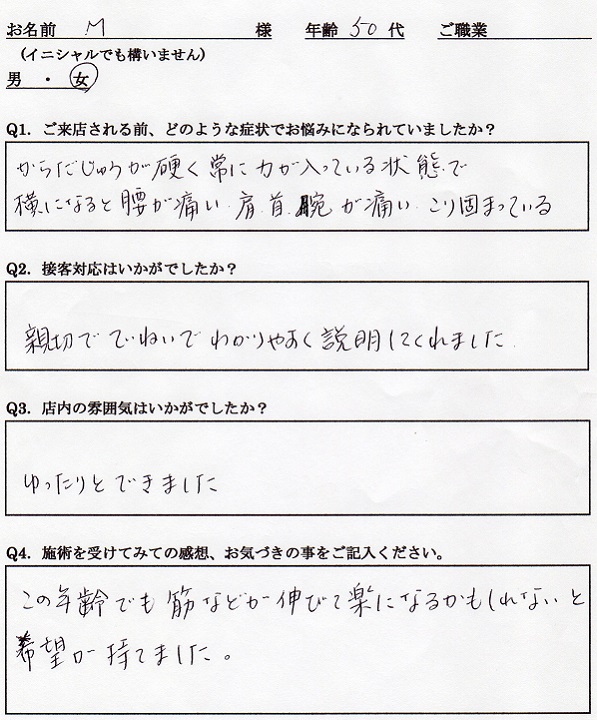 お名前 M 様 年齢 50代 ご職業
(イニシャルでも構いません)
男 ・ 女
Q1. ご来店される前、どのような症状でお悩みになられていましたか?
からだじゅうが硬く常に力が入っている状態で
横になると腰が痛い.肩.首.腕が痛い.こり固まっている
Q2. 接客対応はいかがでしたか?
親切でていねいでわかりやすく説明してくれました.
Q3. 店内の雰囲気はいかがでしたか?
ゆったりとできました
Q4. 施術を受けてみての感想、お気づきの事をご記入ください。
この年齢でも筋などが伸びて楽になるかもしれないと
希望が持てました。